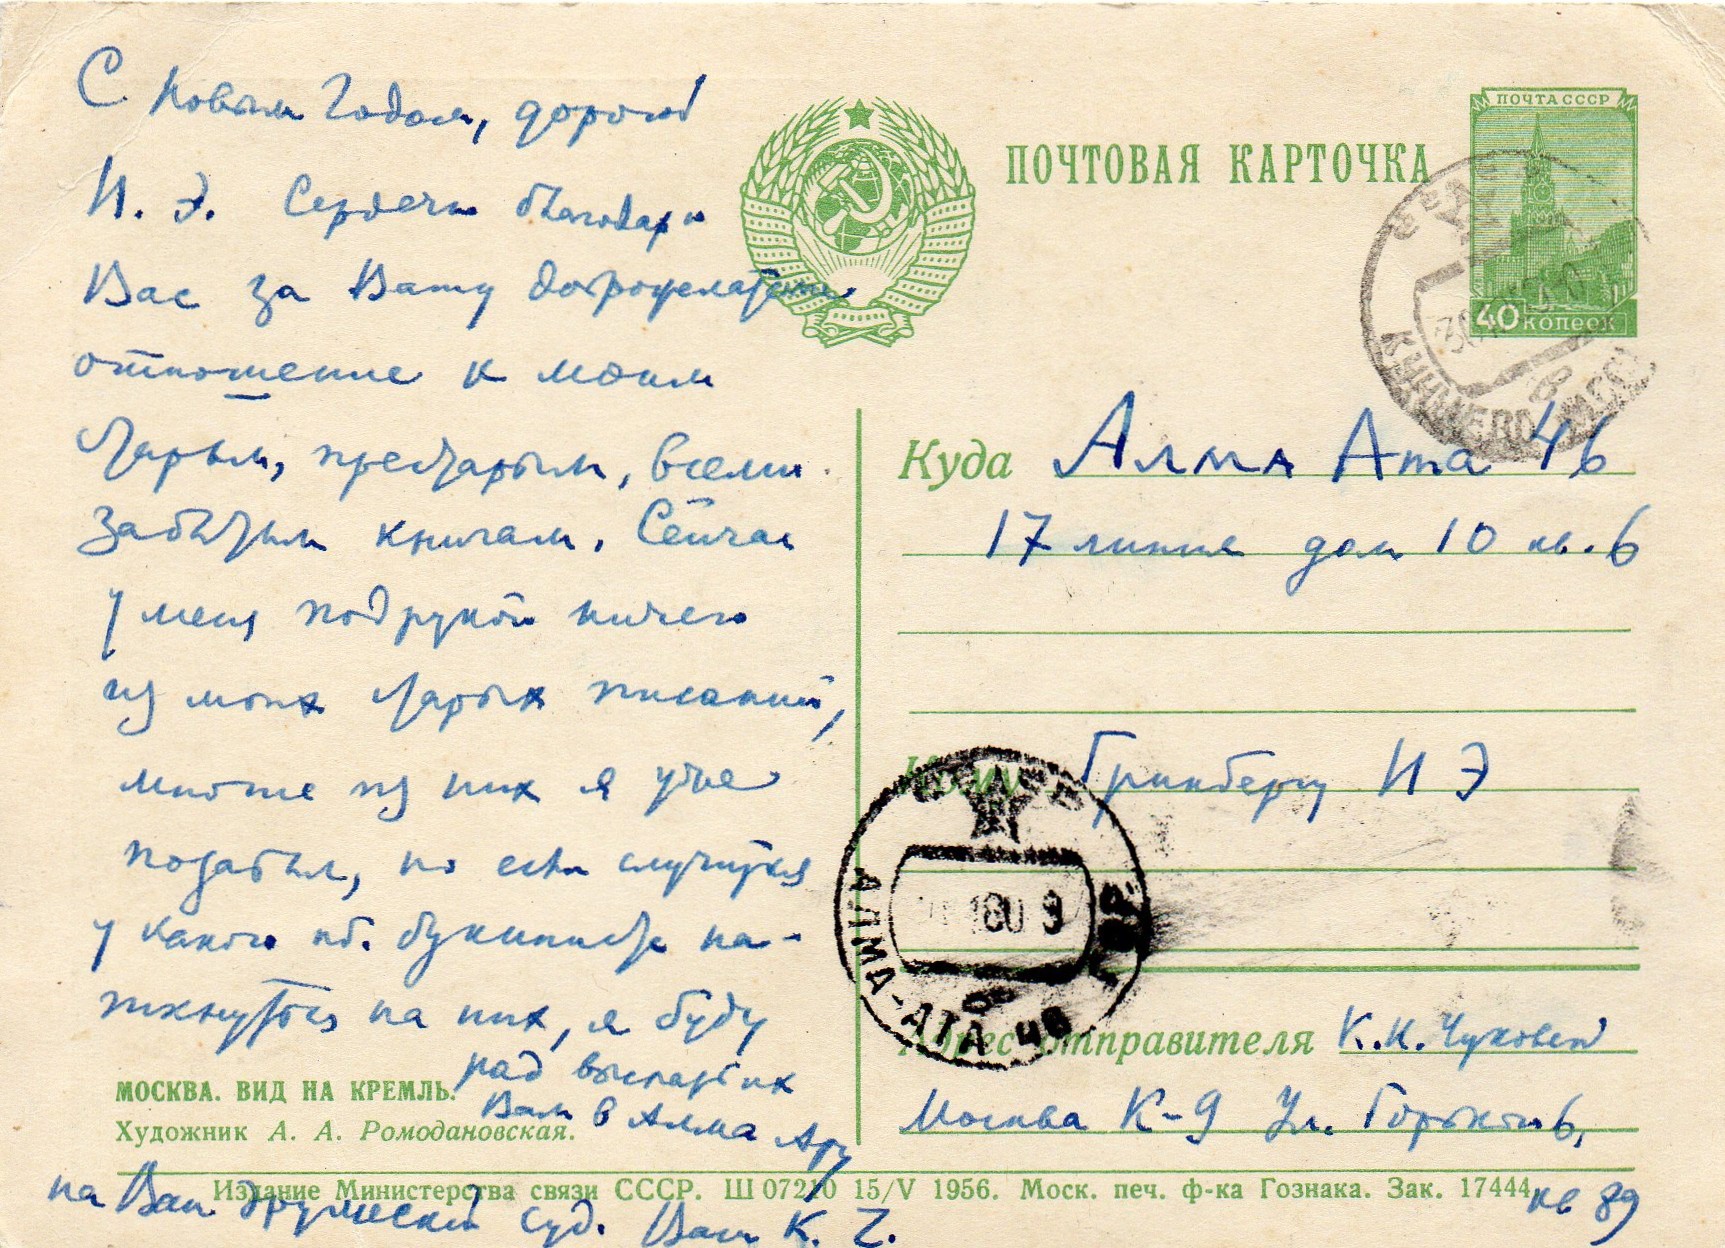 С Новым Годом, дорогой
И. Э. Сердечно благодарю
Вас за Вашу доброжелательн
отношение к моим
старым, престарым, всеми
забытым книгам. Сейчас
у меня под рукой ничего
из моих старых писаний,
многие из них я уже
позабыл, но если случится
у какого нб. букиниста на-
ткнуться на них, я буду
рад выслать их
Вам в Алма Ату
на Ваш дружеский суд. Ваш К. Ч.
МОСКВА. ВИД НА КРЕМЛЬ.
Художник А. А. Ромодановская.
ПОЧТОВАЯ КАРТОЧКА
ПОЧТА СССР
40 КОПЕЕК
КИШИНЕВ
Куда Алма Ата 46
17 линия дом 10 кв. 6
Кому Гринбергу И Э
АЛМА-АТА 46
Адрес отправителя К. И. Чуковский
Москва К-9 Ул. Горького 6,
кв 89
Издание Министерства связи СССР. Ш 07210 15/V 1956. Моск. печ. ф-ка Гознака. Зак. 17444.